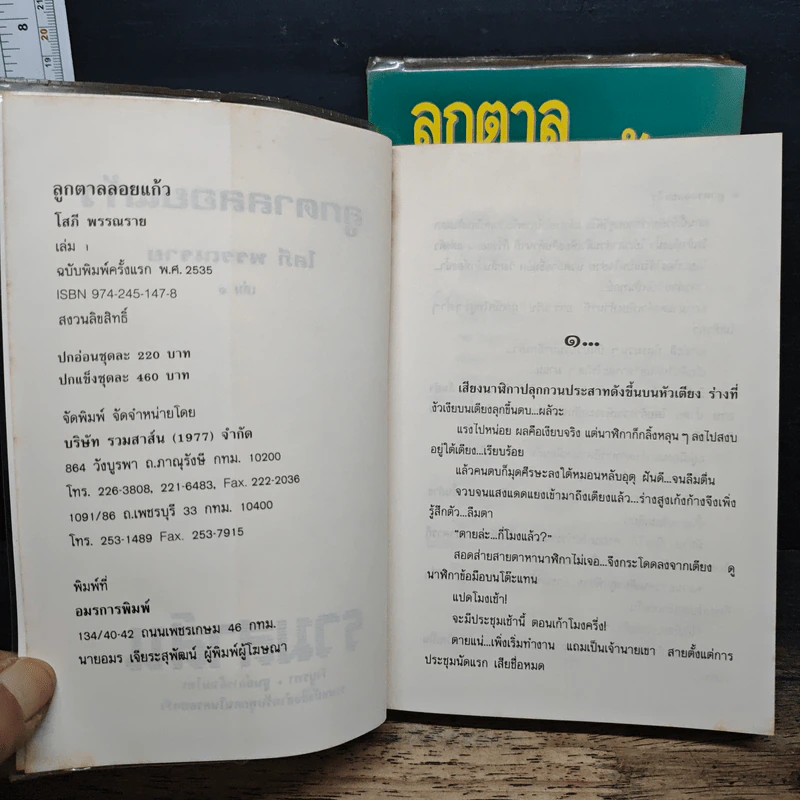 8
21
20
19
ลูกตาล
ลูกตาลลอยแก้ว
โสภี พรรณราย
เล่ม ๑
ฉบับพิมพ์ครั้งแรก พ.ศ. 2535
ISBN 974-245-147-8
สงวนลิขสิทธิ์
ปกอ่อนชุดละ 220 บาท
ปกแข็งชุดละ 460 บาท
จัดพิมพ์ จัดจำหน่ายโดย
บริษัท รวมสาส์น (1977) จำกัด
864 วังบูรพา ถ.ภาณุรังษี กทม. 10200
โทร. 226-3808, 221-6483, Fax. 222-2036
1091/86 ถ.เพชรบุรี 33 กทม. 10400
โทร. 253-1489 Fax. 253-7915
พิมพ์ที่
อมรการพิมพ์
134/40-42 ถนนเพชรเกษม 46 กทม.
นายอมร เจียระสุพัฒน์ ผู้พิมพ์ผู้โฆษณา
๑...
เสียงนาฬิกาปลุกกวนประสาทดังขึ้นบนหัวเตียง ร่างที่
งัวเงียบนเตียงลุกขึ้นตบ...ผลัวะ
แรงไปหน่อย ผลคือเงียบจริง แต่นาฬิกาก็กลิ้งหลุน ๆ ลงไปสงบ
อยู่ใต้เตียง...เรียบร้อย
แล้วคนตบก็มุดศีรษะลงใต้หมอนหลับอุตุ ฝันดี...จนลืมตื่น
จวบจนแสงแดดแยงเข้ามาถึงเตียงแล้ว...ร่างสูงเก้งก้างจึงเพิ่ง
รู้สึกตัว...ลืมตา
"ตายล่ะ...กี่โมงแล้ว?"
สอดส่ายสายตาหานาฬิกาไม่เจอ...จึงกระโดดลงจากเตียง ดู
นาฬิกาข้อมือบนโต๊ะแทน
แปดโมงเช้า!
จะมีประชุมเช้านี้ ตอนเก้าโมงครึ่ง!
ตายแน่...เพิ่งเริ่มทำงาน แถมเป็นเจ้านายเขา สายตั้งแต่การ
ประชุมนัดแรก เสียชื่อหมด